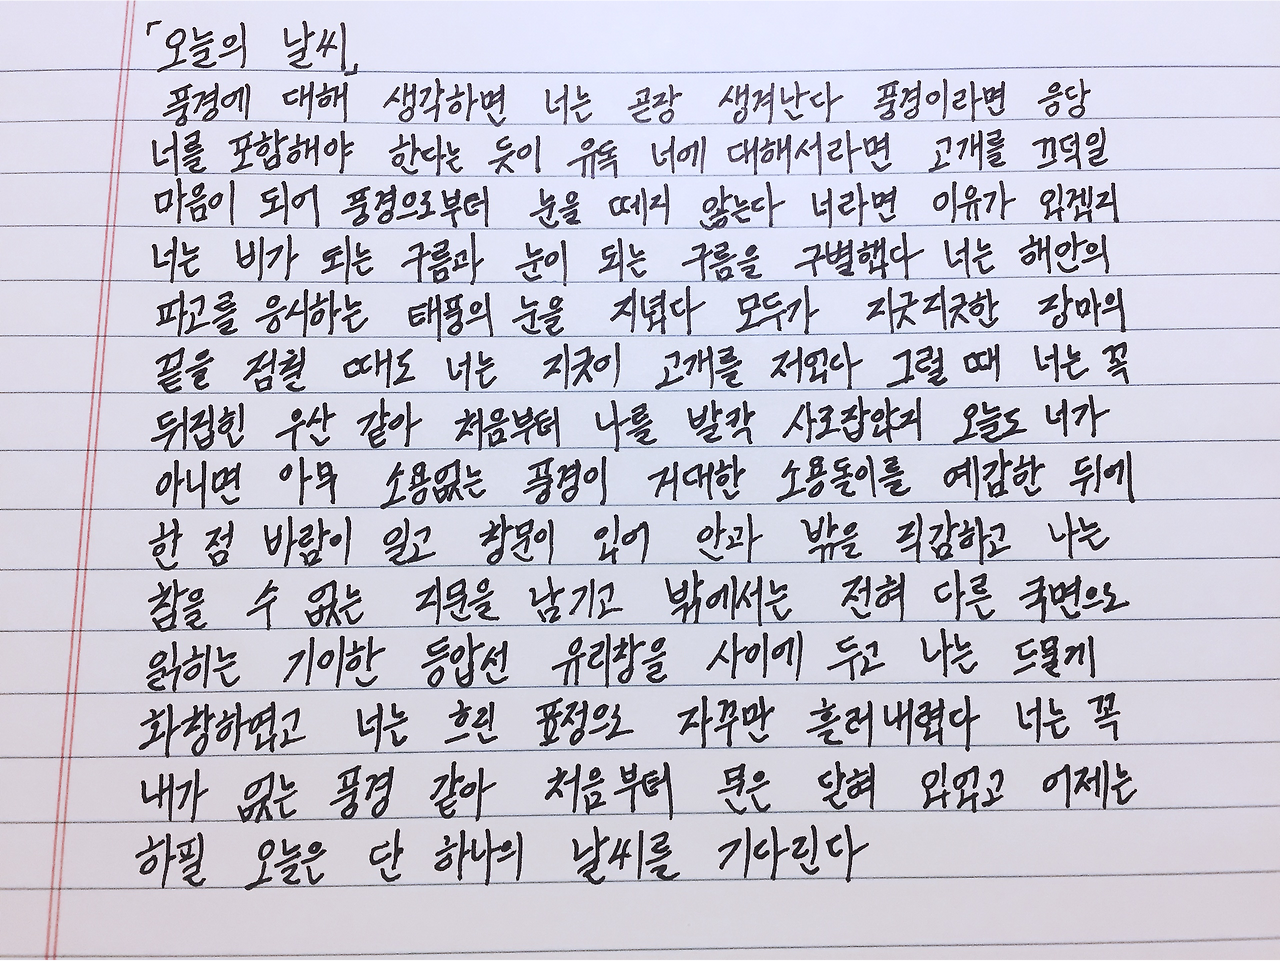 「오늘의 날씨」
풍경에 대해 생각하면 너는 곧장 생겨난다 풍경이라면 응당
너를 포함해야 한다는 듯이 유독 너에 대해서라면 고개를 끄덕일
마음이 되어 풍경으로부터 눈을 떼지 않는다 너라면 이유가 있겠지
너는 비가 되는 구름과 눈이 되는 구름을 구별했다 너는 해안의
파고를 응시하는 태풍의 눈을 지녔다 모두가 지긋지긋한 장마의
끝을 점칠 때도 너는 지긋이 고개를 저었다 그럴 때 너는 꼭
뒤집힌 우산 같아 처음부터 나를 발칵 사로잡았지 오늘도 너가
아니면 아무 소용없는 풍경이 거대한 소용돌이를 예감한 뒤에
한 점 바람이 일고 창문이 있어 안과 밖을 직감하고 나는
참을 수 없는 지문을 남기고 밖에서는 전혀 다른 국면으로
읽히는 기이한 등압선 유리창을 사이에 두고 나는 드물게
화창하였고 너는 흐린 표정으로 자꾸만 흘러내렸다 너는 꼭
내가 없는 풍경 같아 처음부터 문은 닫혀 있었고 어제는
하필 오늘은 단 하나의 날씨를 기다린다